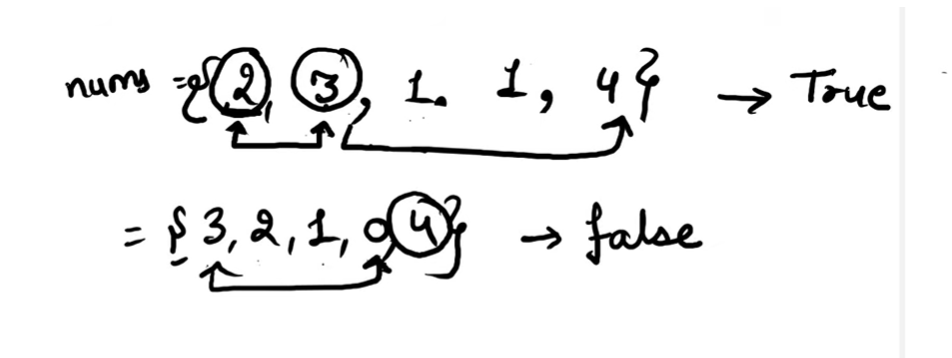 nums = {2, 3, 1, 1, 4} → True
= {3, 2, 1, 0, 4} → false